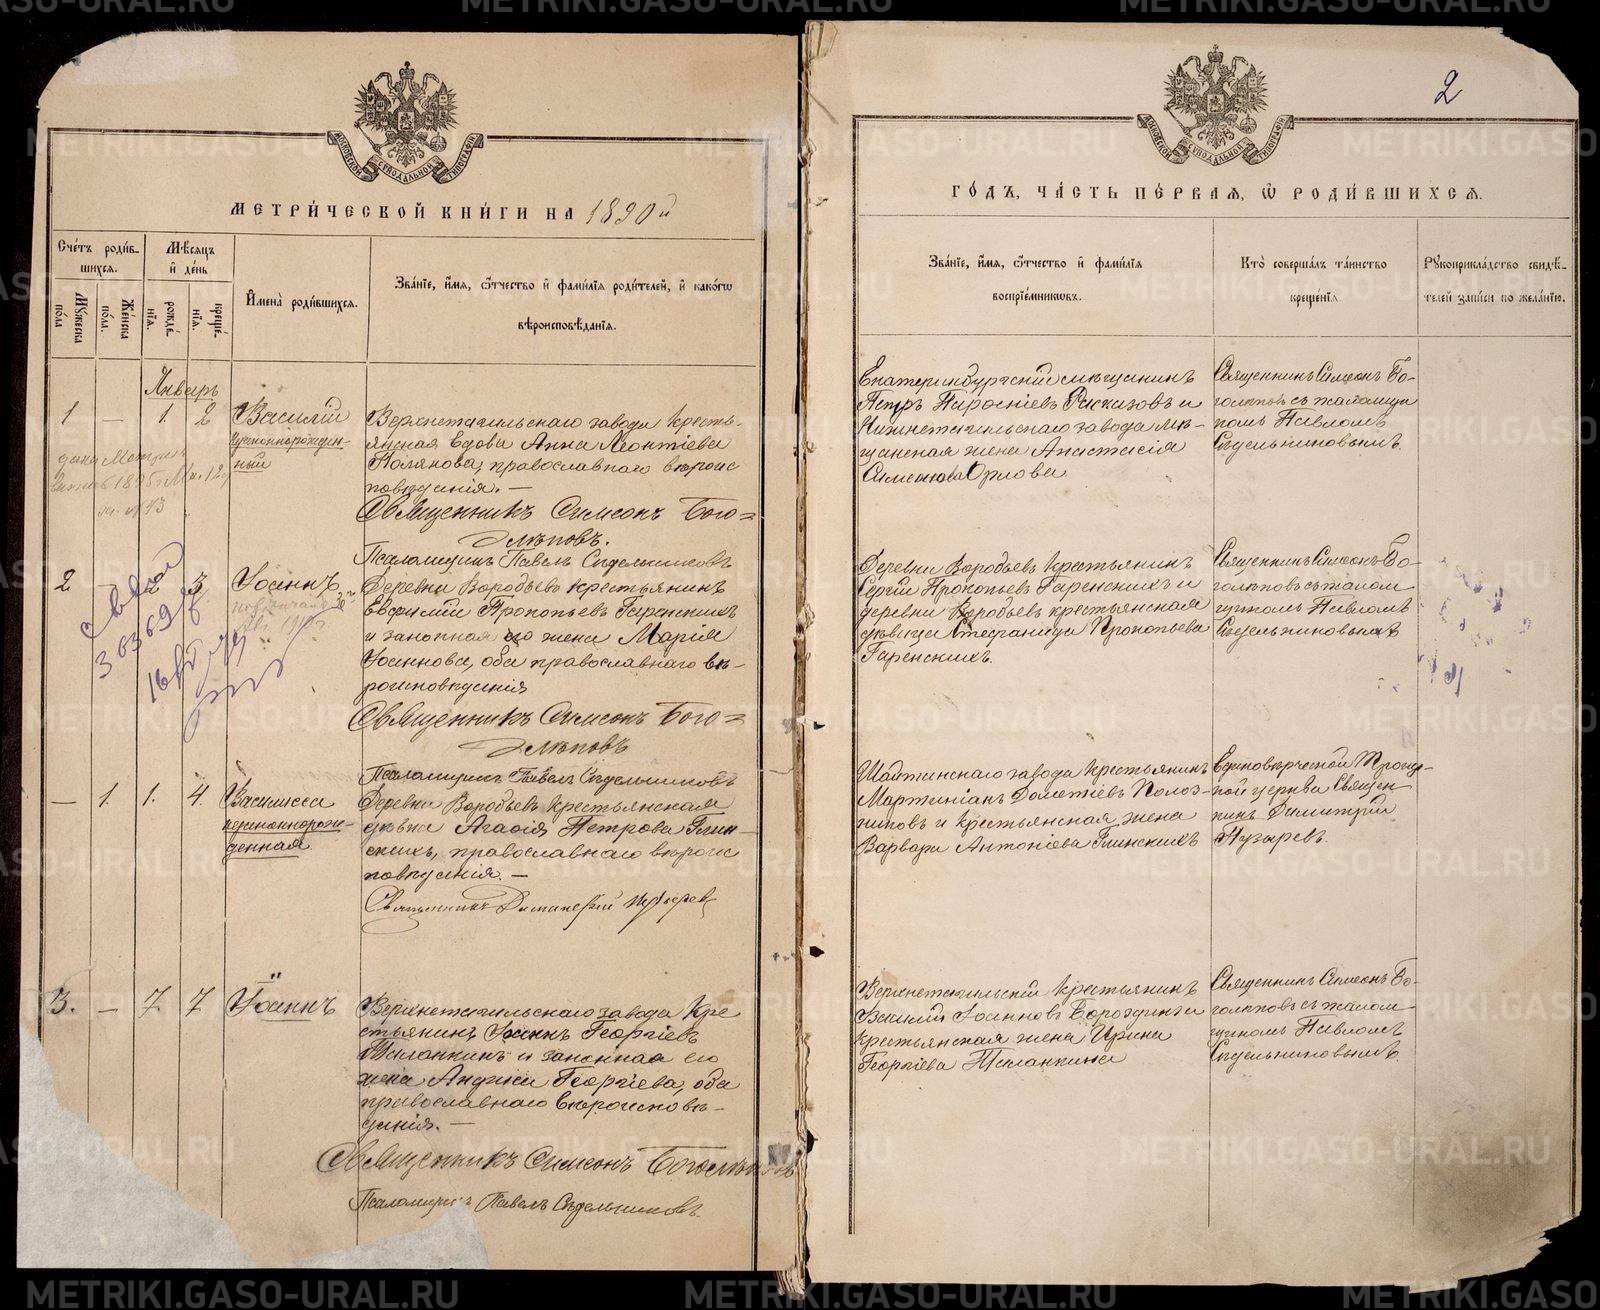 МЕТРИ́ЧЕСКОЙ КНИ́ГИ НА 1890 й
Сче́тъ роди́в-
шихся.
Мѣ́сяцъ
и҆ де́нь
Мꙋжеска
по́ла
Же́нска
по́ла.
рожде́-
нїѧ.
креще́-
нїѧ.
И҆мена̀ роди́вшихся.
Зва́нїе, и҆́мя, ѻ҆́тчество и҆ фами́лїя роди́телей, и҆ како́гѡ
вѣроисповѣ́данїя.
Январь
1 — 1. 2 Василій
незаконнорожден-
ный
Верхнетагильскаго завода кресть-
янская вдова Анна Леонтіева
Полякова, православнаго вѣроис
повѣданія. —
Священникъ Симеонъ Бого=
лѣповъ.
Псаломщикъ Павелъ Сѣдельниковъ
2 — 2 3 Іоаннъ
36369
Деревни Воробьевъ крестьянинъ
Евфимій Прокопьевъ Гаренскихъ
и законная его жена Марія
Іоаннова, оба православнаго вѣ-
роисповѣданія
Священникъ Симеонъ Бого=
лѣповъ
Псаломщикъ Павелъ Сѣдельниковъ
— 1. 1. 4. Василисса
незаконнорож-
денная
Деревни Воробьевъ крестьянская
дѣвка Агафія Петрова Глин-
скихъ, православнаго вѣроис
повѣданія. —
Священникъ Димитрій Пузырев
3. — 7. 7 Іоаннъ
Верхнетагильскаго завода Кре
стьянинъ Іоаннъ Георгіевъ
Таланкинъ и законная его
жена Георгіева, оба
православнаго вѣроисповѣ-
данія. —
Священникъ Симеонъ Боголѣповъ
Псаломщикъ Павелъ Сѣдельниковъ.
2
ГО́ДЪ, ЧА́СТЬ ПЕ́РВАЯ, Ѡ҆ РОДИ́ВШИХСЯ.
Зва́нїе, и҆́мя, ѻ҆́тчество и҆ фами́лїя
воспрїе́мникѡвъ.
Кто̀ соверша́лъ та́инство
креще́нїя.
Рꙋкоприкла́дство свидѣ́-
телей за́писи по жела́нїю.
Екатеринбургскій мѣщанинъ
Петръ Расказовъ и
Нижнетагильскаго завода мѣ-
щанская жена Анастасія
Симеонова Орлова
Священникъ Симеонъ Бо-
голѣповъ съ псаломщи
комъ Павломъ
Сѣдельниковымъ.
Деревни Воробьевъ крестьянинъ
Сергій Прокопьевъ Гаренскихъ и
деревни Воробьевъ крестьянская
дѣвица Стефанида Прокопьева
Гаренскихъ.
Священникъ Симеонъ Бо-
голѣповъ съ псалом
щикомъ Павломъ
Сѣдельниковымъ
Шайтинскаго завода крестьянинъ
Мартиніанъ Дометіевъ Полоз-
никовъ и крестьянская жена
Варвара Антоніева Глинскихъ
Единовѣрческой Троиц-
кой церкви Священ
никъ Димитрій
Пузыревъ.
Верхнетагильскій крестьянинъ
Василій Іоанновъ Бороздинъ и
крестьянская жена Ирина
Георгіева Таланкина
Священникъ Симеонъ Бо-
голѣповъ съ псалом
щикомъ Павломъ
Сѣдельниковымъ.
METRIKI.GASO-URAL.RU